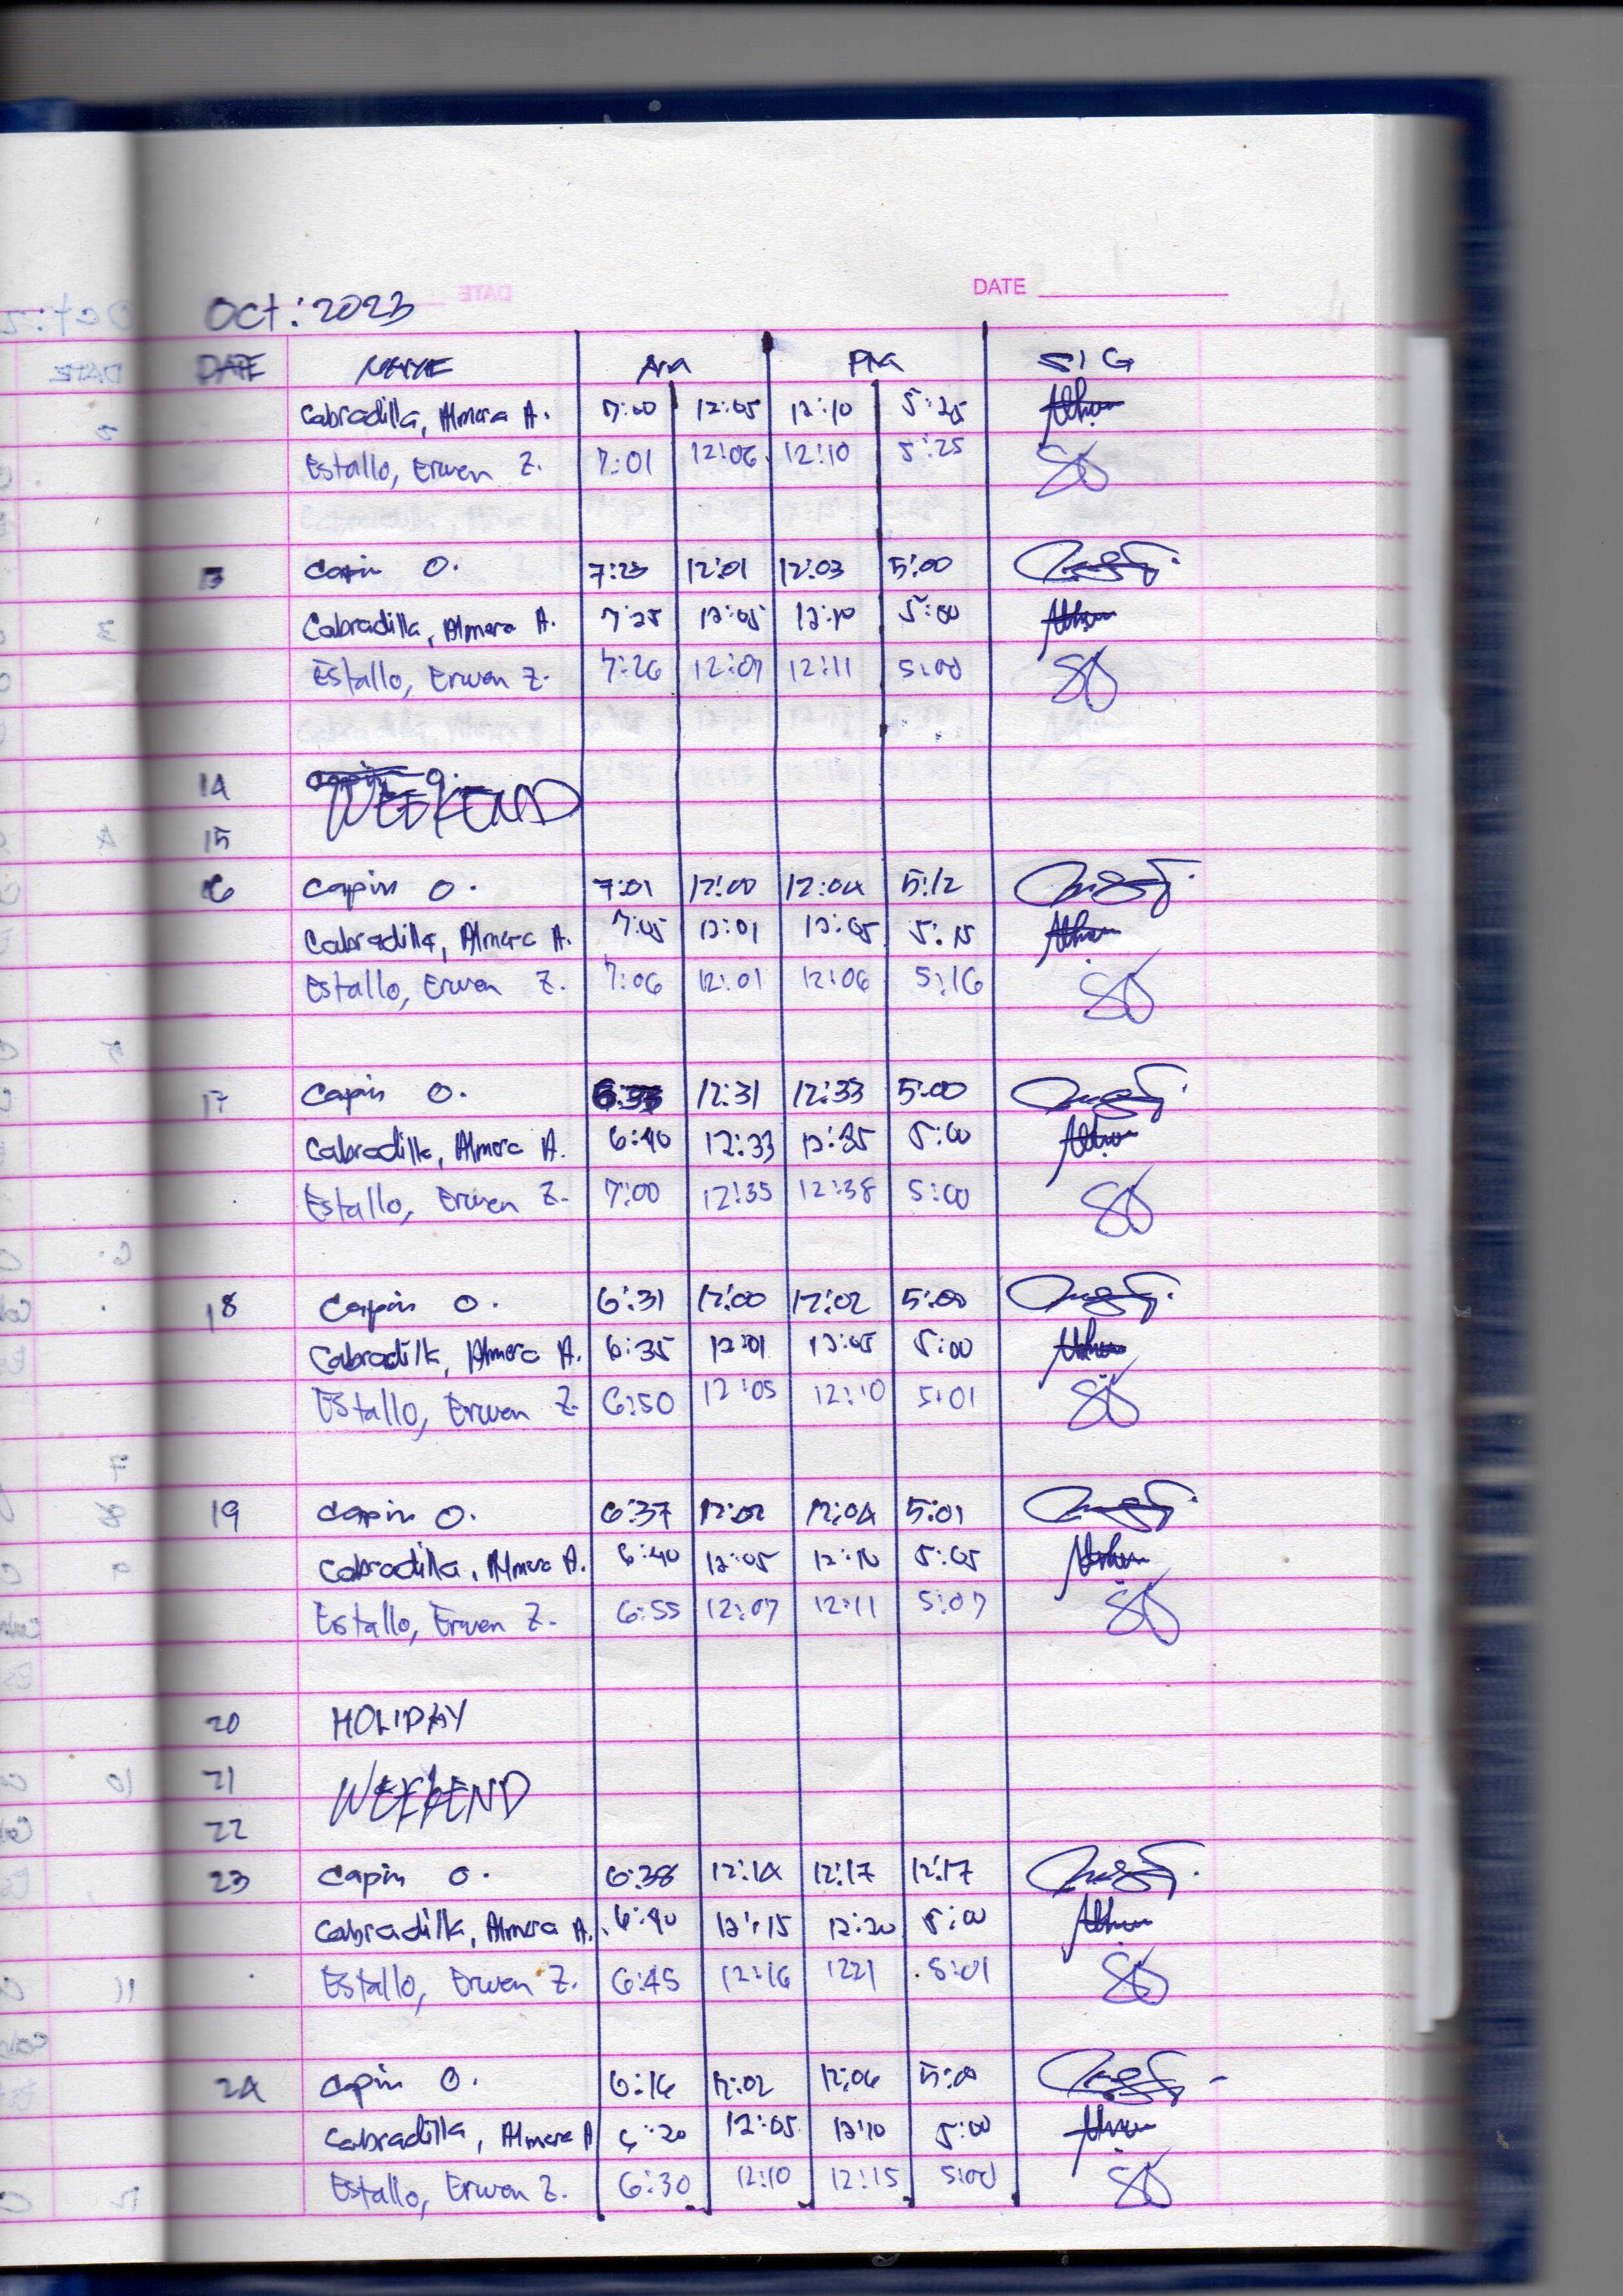 DATE
Oct: 2023
DATE NAME Am Pm SIG
Cabradilla, Almera A. 7:00 12:05 12:10 5:25
Estallo, Erwen Z. 7:01 12:06 12:10 5:25
13 Capin O. 7:23 12:01 12:03 5:00
Cabradilla, Almera A. 7:25 12:05 12:10 5:00
Estallo, Erwen Z. 7:26 12:07 12:11 5:00
14 Capin O.
WEEKEND
15
16 Capin O. 7:01 12:00 12:04 5:12
Cabradilla, Almera A. 7:05 12:01 12:05 5:15
Estallo, Erwen Z. 7:06 12:01 12:06 5:16
17 Capin O. 12:31 12:33 5:00
Cabradilla, Almera A. 6:40 12:33 12:35 5:00
Estallo, Erwen Z. 7:00 12:35 12:38 5:00
18 Capin O. 6:31 12:00 12:02 5:00
Cabradilla, Almera A. 6:35 12:01 12:05 5:00
Estallo, Erwen Z. 6:50 12:05 12:10 5:01
19 Capin O. 6:37 12:02 12:04 5:01
Cabradilla, Almera A. 6:40 12:05 12:10 5:05
Estallo, Erwen Z. 6:55 12:07 12:11 5:07
20 HOLIDAY
21 WEEKEND
22
23 Capin O. 6:38 12:14 12:17 12:17
Cabradilla, Almera A. 6:40 12:15 12:20 5:00
Estallo, Erwen Z. 6:45 12:16 1221 5:01
24 Capin O. 6:16 12:02 12:06 5:00
Cabradilla, Almera A 6:20 12:05 12:10 5:00
Estallo, Erwen Z. 6:30 12:10 12:15 5:00